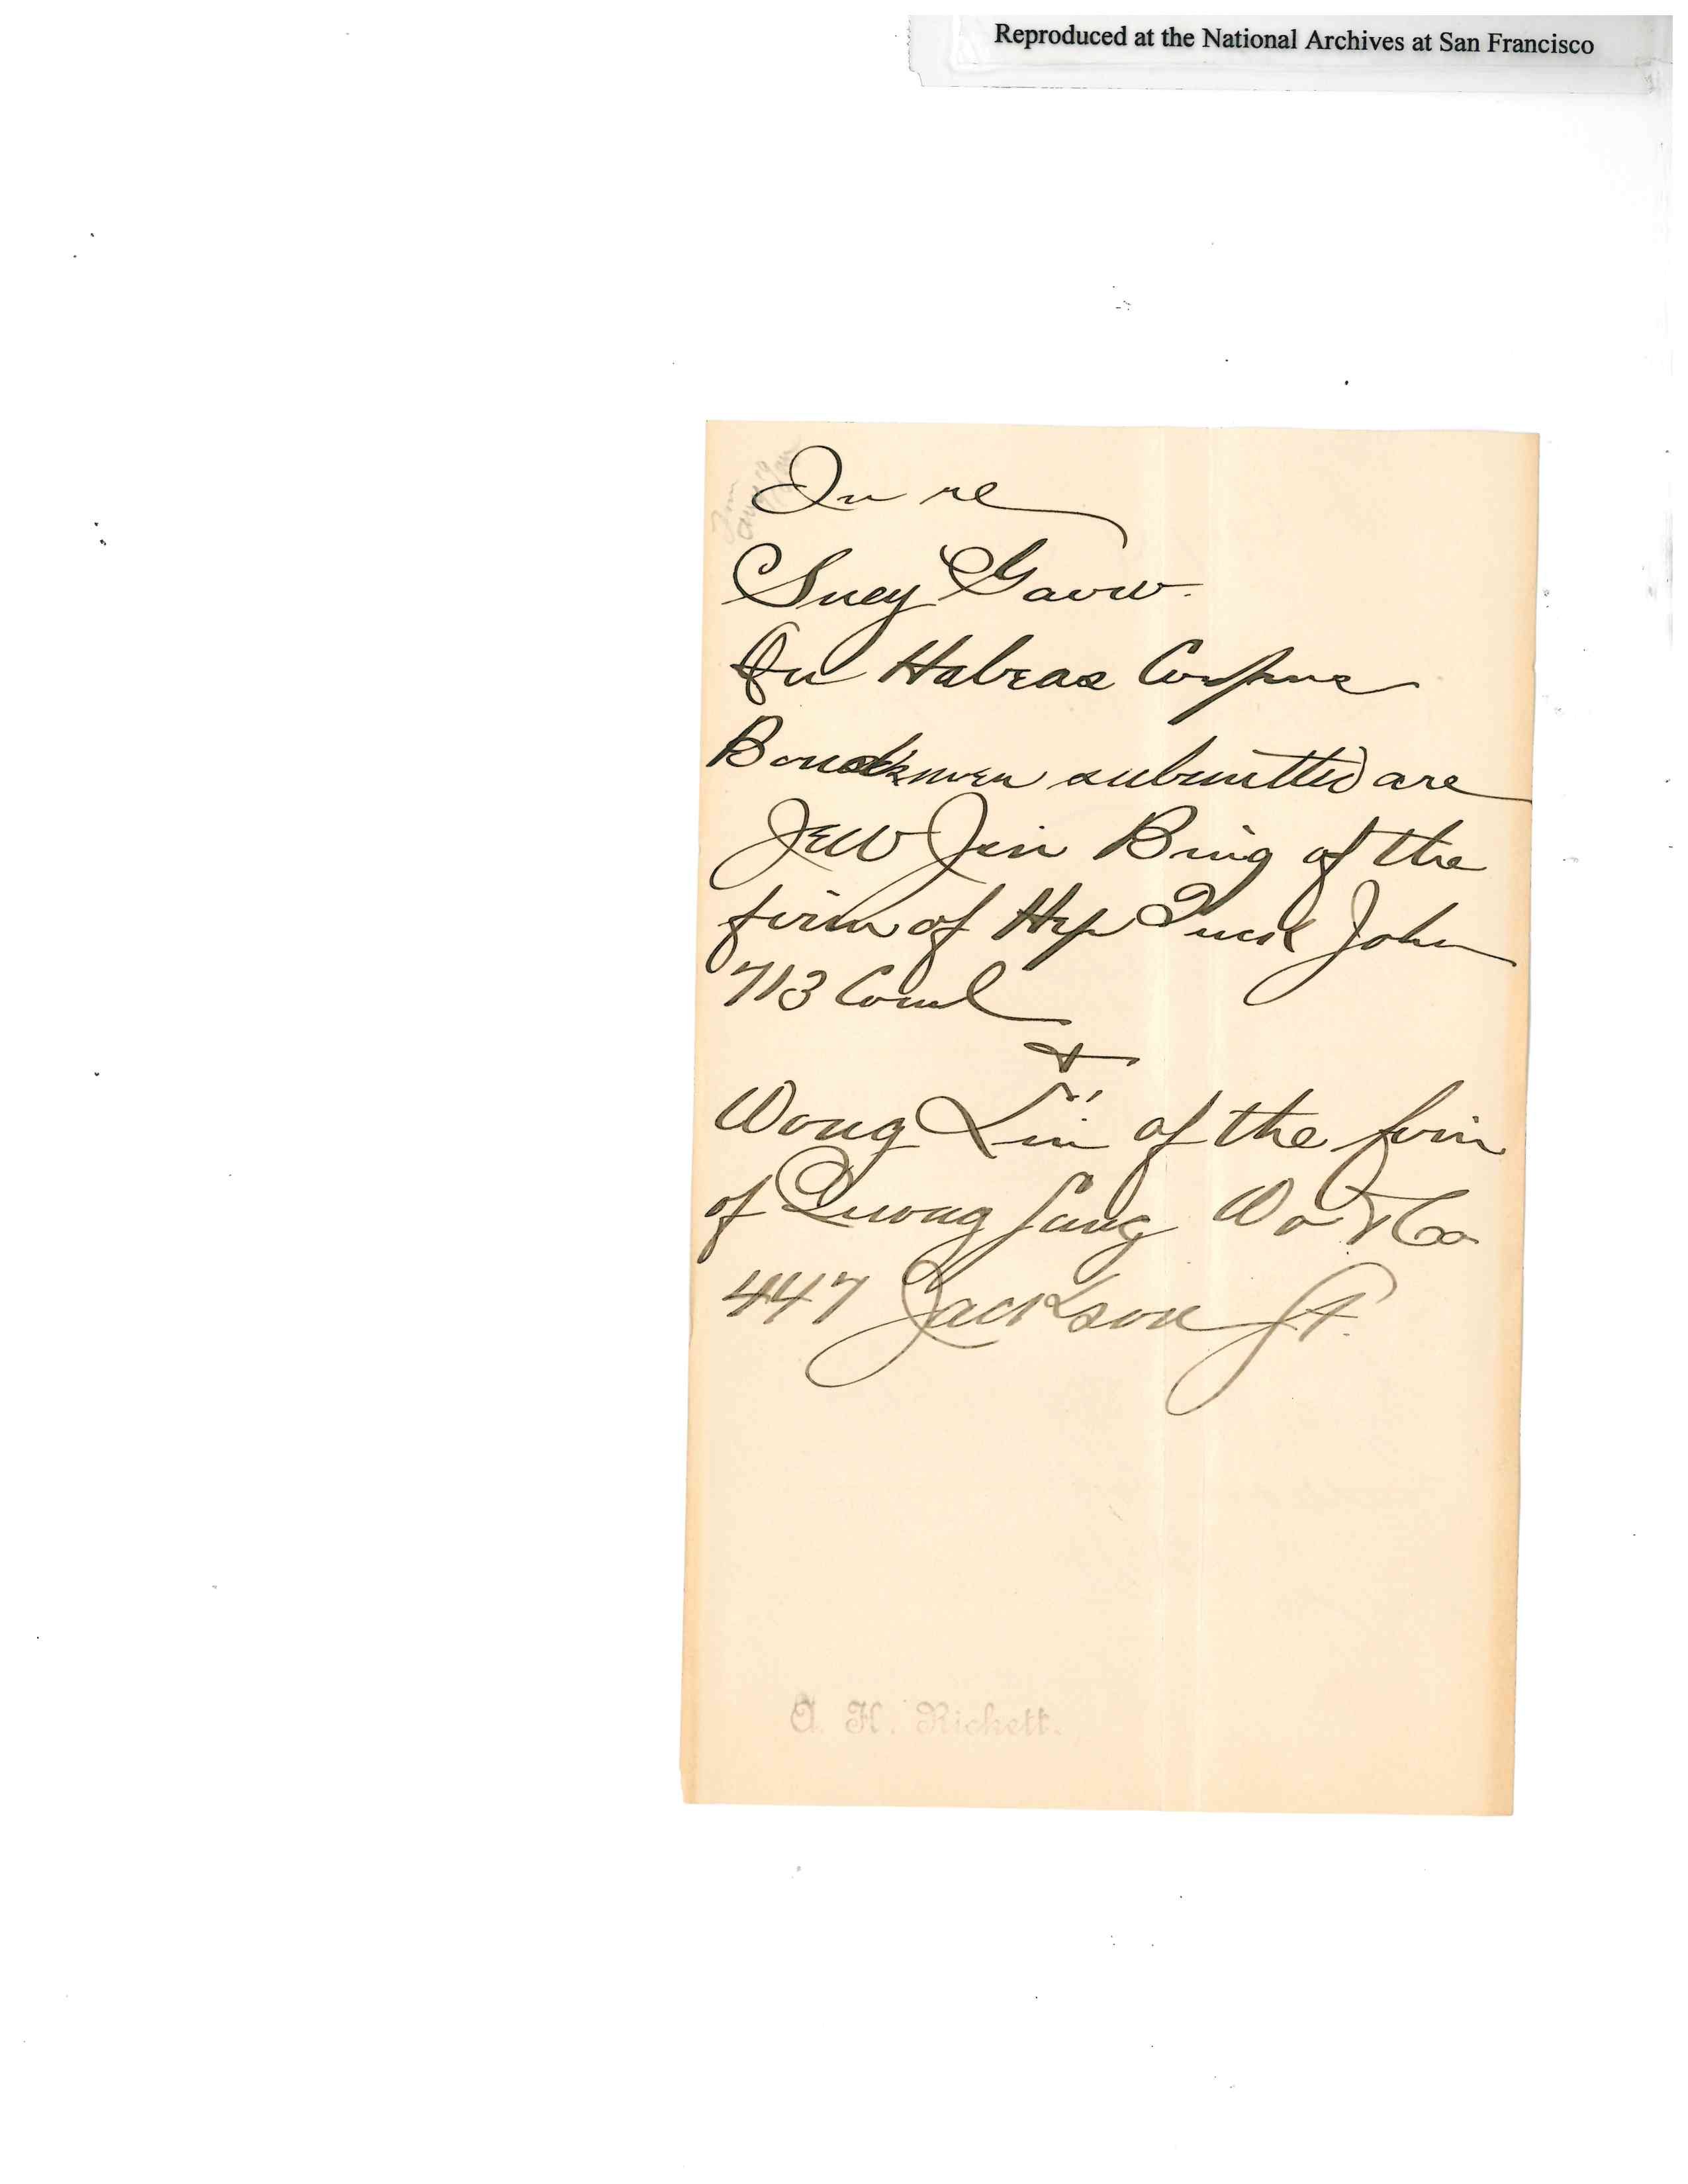 Reproduced at the National Archives at San Francisco
In re
Suey Gaw.
On Habeas Corpus
Bondsmen submitted are
Jew Jin Bing of the
firm of Hip Quck John
713 Coml
&
Wong Lin of the firm
of Quong Sang Wo & Co
447 Jackson St.
A. H. Rickett.